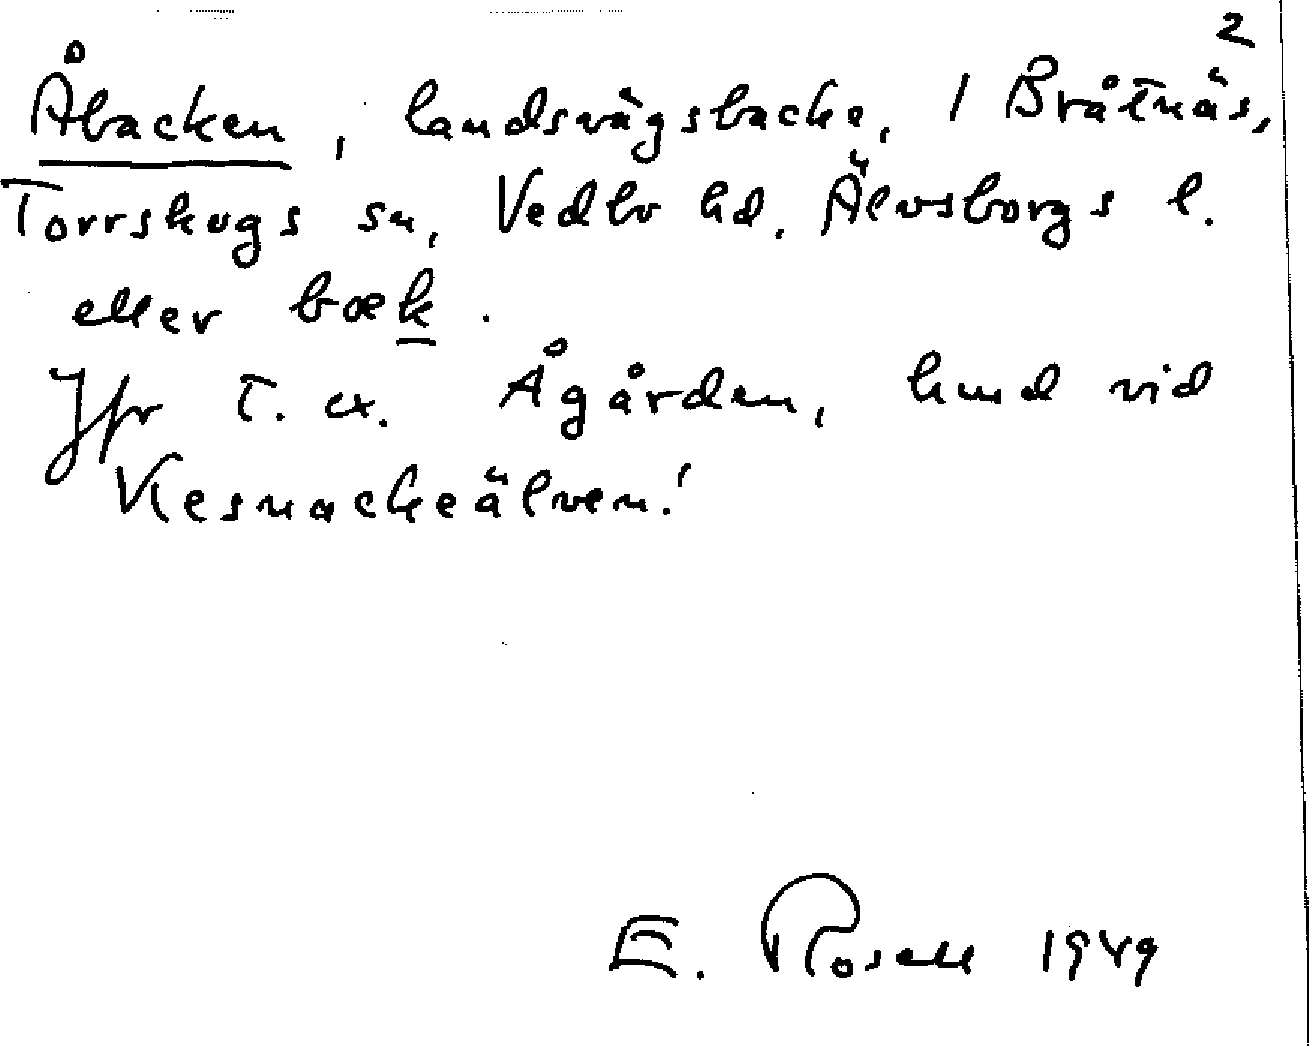 2
Åbacken, landsvägsbacke, 1 Bråtnäs,
Torrskogs sn, Vedbo hd. Älvsborgs l.
eller bæk.
Jfr t. ex. Ågården, hmd vid
Kesnackeälven!
E. Rosell 1949